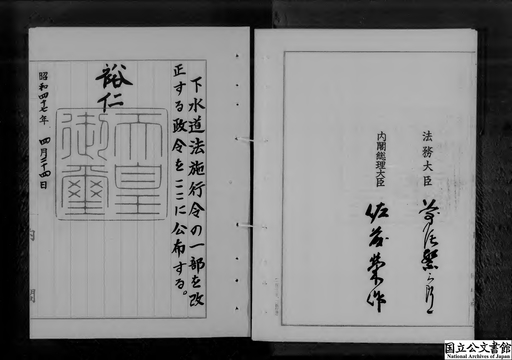 下水道法施行令の一部を改
正する政令をここに公布する。
裕仁
天皇
御璽
昭和四十七年 四月二十四日
内閣
法務大臣
内閣総理大臣
佐藤榮作
国立公文書館
National Archives of Japan